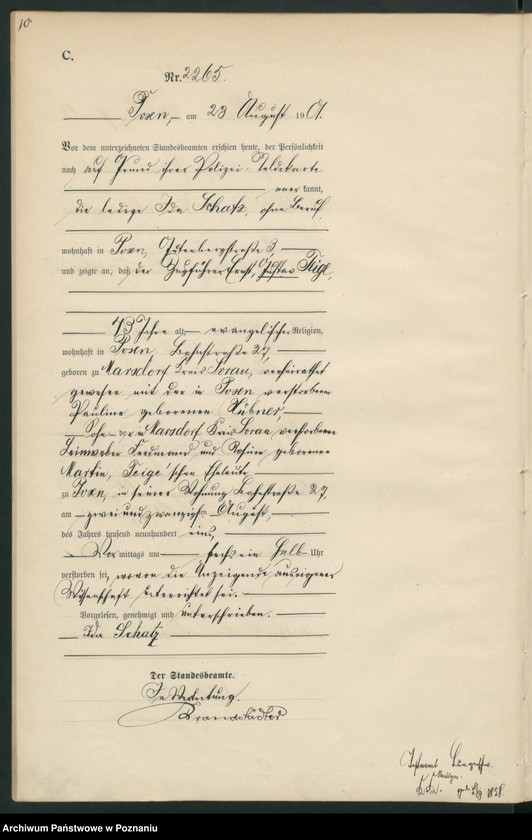 10
C.
Nr. 2265.
Posen, am 23 August 1901.
Vor dem unterzeichneten Standesbeamten erschien heute, der Persönlichkeit
nach auf Grund ihrer Polizei-Meldekarte
anerkannt,
die ledige Ida Schatz, ohne Beruf
wohnhaft in Posen, Gutenbergstraße 3,
und zeigte an, daß der Zugführer Ernst, Gustav Feige,
43 Jahre alt, evangelischer Religion,
wohnhaft in Posen, 27,
geboren zu Marsdorf Kreis Sorau, verheirathet
gewesen mit der in Posen verstorbenen
Pauline geborenen Hübner,
Sohn der in Marsdorf Kreis Sorau verstorbenen
Leinweber Ferdinand und Rosine geborenen
Martin, Feige'schen Eheleute
zu Posen, in seiner Wohnung 27,
am zwei und zwanzigsten August,
des Jahres tausend neunhundert eins,
Vormittags um sechs ein halb Uhr
verstorben sei, wovon die Anzeigende aus eigener
Wissenschaft unterrichtet sei.
Vorgelesen, genehmigt und unterschrieben.
Ida Schatz
Der Standesbeamte.
In Vertretung.
Brandstädter
Archiwum Państwowe w Poznaniu